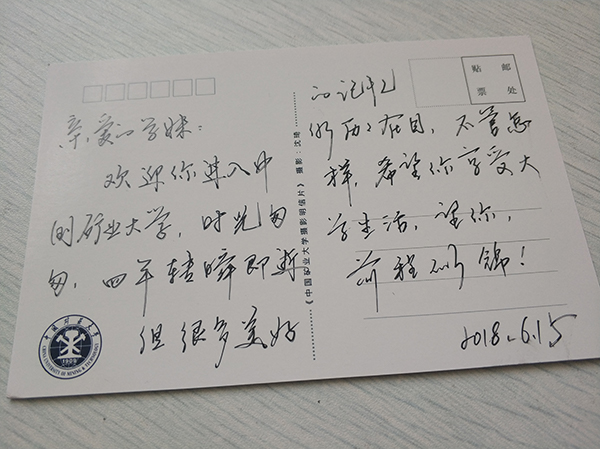 亲爱的学妹：
欢迎你进入中
国矿业大学，时光匆
匆，四年转瞬即逝
但很多美好
的记忆
仍历历在目，不管怎
样，希望你享受大
学生活，望你，
前程似锦！
2018.6.15
贴 邮
票 处
《中国矿业大学摄影明信片》 摄影：沈琦
中国矿业大学
1909
CHINA UNIVERSITY OF MINING & TECHNOLOGY